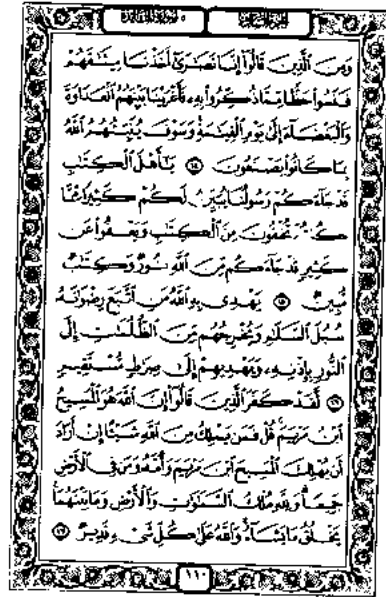 وَمِنَ ٱلَّذِينَ قَالُوٓا۟ إِنَّا نَصَٰرَىٰٓ أَخَذْنَا مِيثَٰقَهُمْ
فَنَسُوا۟ حَظًّا مِّمَّا ذُكِّرُوا۟ بِهِۦ فَأَغْرَيْنَا بَيْنَهُمُ ٱلْعَدَاوَةَ
وَٱلْبَغْضَآءَ إِلَىٰ يَوْمِ ٱلْقِيَٰمَةِ وَسَوْفَ يُنَبِّئُهُمُ ٱللَّهُ
بِمَا كَانُوا۟ يَصْنَعُونَ ١٤ يَٰٓأَهْلَ ٱلْكِتَٰبِ
قَدْ جَآءَكُمْ رَسُولُنَا يُبَيِّنُ لَكُمْ كَثِيرًا مِّمَّا
كُنتُمْ تُخْفُونَ مِنَ ٱلْكِتَٰبِ وَيَعْفُوا۟ عَن
كَثِيرٍ قَدْ جَآءَكُم مِّنَ ٱللَّهِ نُورٌ وَكِتَٰبٌ
مُّبِينٌ ١٥ يَهْدِى بِهِ ٱللَّهُ مَنِ ٱتَّبَعَ رِضْوَٰنَهُۥ
سُبُلَ ٱلسَّلَٰمِ وَيُخْرِجُهُم مِّنَ ٱلظُّلُمَٰتِ إِلَى
ٱلنُّورِ بِإِذْنِهِۦ وَيَهْدِيهِمْ إِلَىٰ صِرَٰطٍ مُّسْتَقِيمٍ
١٦ لَّقَدْ كَفَرَ ٱلَّذِينَ قَالُوٓا۟ إِنَّ ٱللَّهَ هُوَ ٱلْمَسِيحُ
ٱبْنُ مَرْيَمَ قُلْ فَمَن يَمْلِكُ مِنَ ٱللَّهِ شَيْـًٔا إِنْ أَرَادَ
أَن يُهْلِكَ ٱلْمَسِيحَ ٱبْنَ مَرْيَمَ وَأُمَّهُۥ وَمَن فِى ٱلْأَرْضِ
جَمِيعًا وَلِلَّهِ مُلْكُ ٱلسَّمَٰوَٰتِ وَٱلْأَرْضِ وَمَا بَيْنَهُمَا
يَخْلُقُ مَا يَشَآءُ وَٱللَّهُ عَلَىٰ كُلِّ شَىْءٍ قَدِيرٌ ١٧
١١٠